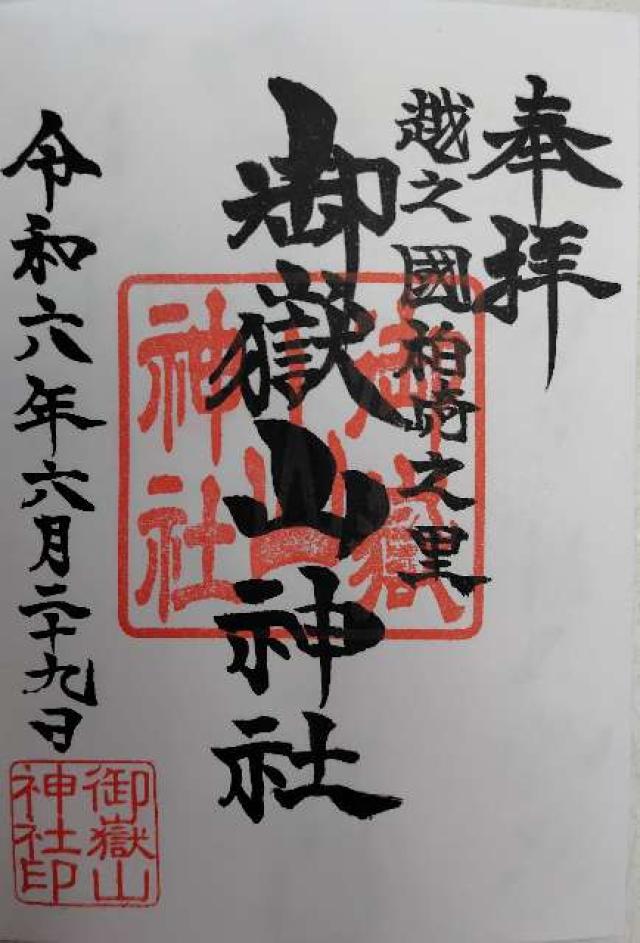 奉拝
越之國柏崎之里
御嶽山神社
令和六年六月二十九日
御嶽
山
神社
御嶽山
神社印